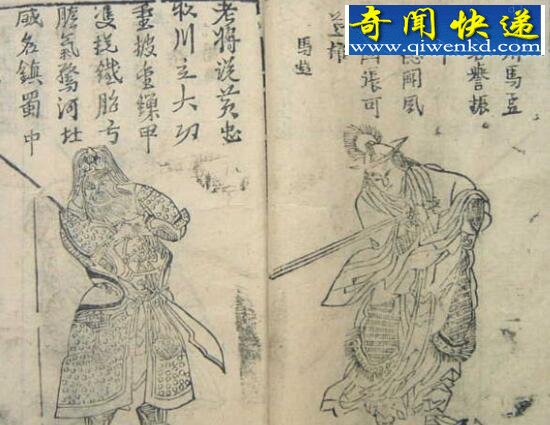 奇闻快递
www.qiwenkd.com
川馬孟
譽振
剛風
張可
馬超
老將説黄忠
收川立大功
重披金鎖甲
雙挽鐵胎弓
膽氣驚河北
威名鎮蜀中